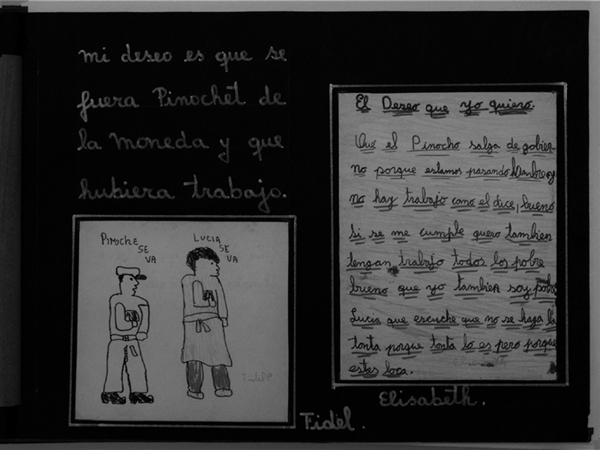 mi deseo es que se
fuera Pinochet de
la moneda y que
hubiera trabajo.
PINOCHE
SE
VA
LUCIA
SE
VA
Fidel.
El Deseo que yo quiero.
Que el Pinocho salga de gobier
no porque estamos pasando hambre y
no hay trabajo como el dice, bueno
si se me cumple quero tambien
tengan trabajo todos los pobre
bueno que yo tambien soy pobre
Lucia que escuche que no se haga la
tonta porque tonta lo es pero porque
estes loca.
Elisabeth.